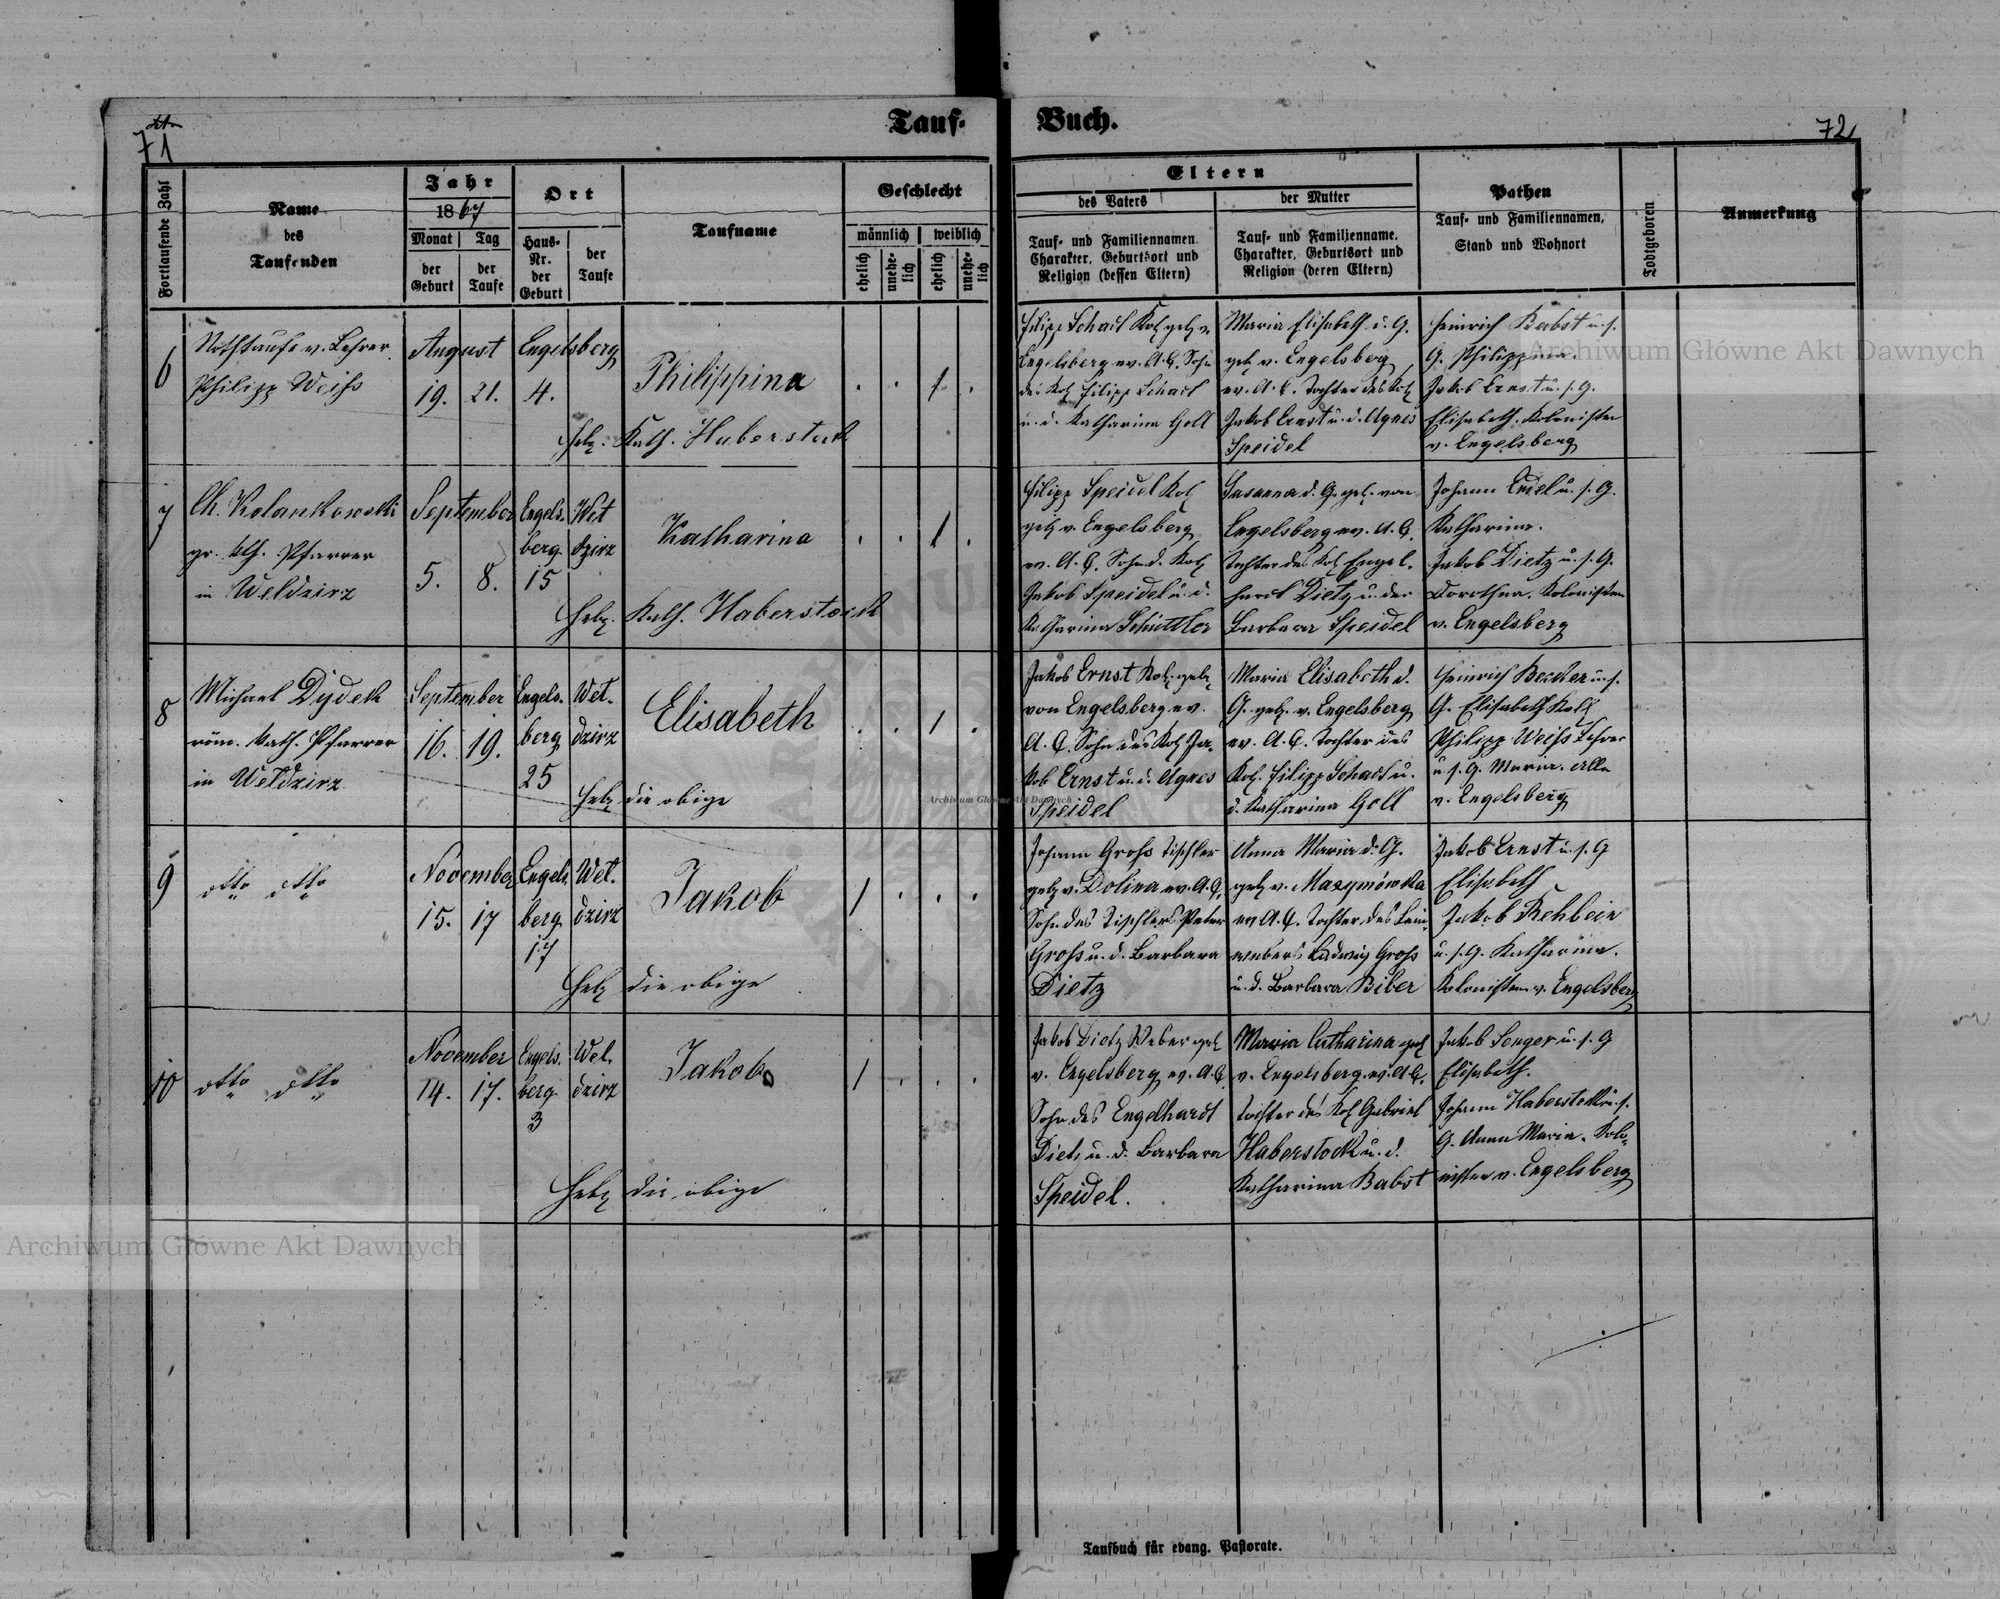 71
Tauf-
Buch.
72
Fortlaufende Zahl
Name
des
Taufenden
Jahr
1867
Monat
Tag
der
Geburt
der
Taufe
Ort
Haus-
Nr.
der
Geburt
der
Taufe
Taufname
Geschlecht
männlich
weiblich
ehelich
unehe-
lich
ehelich
unehe-
lich
Eltern
des Vaters
der Mutter
Tauf- und Familiennamen.
Charakter, Geburtsort und
Religion (dessen Eltern)
Tauf- und Familienname.
Charakter, Geburtsort und
Religion (deren Eltern)
Pathen
Tauf- und Familiennamen,
Stand und Wohnort
Todtgeboren
Anmerkung
6
Nothtaufe v. Lehrer
Philipp Weiss
August
19. 21.
Engelsberg
4.
Philippina
1
Hebz. Kath. Haberstock
Filipp Schad Kol. geb. v.
Engelsberg ev. A.C. Sohn
des Kol. Filipp Schad
u. d. Katharina Goll
Maria Elisabeth d. G.
geb. v. Engelsberg
ev. A.C. Tochter des Kol.
Jakob Ernst u. d. Agnes
Speidel
Heinrich Babst u. s.
G. Philippina.
Jakob Ernst u. s. G.
Elisabeth. Kolonisten
v. Engelsberg
7
Ch. Kolankowski
gr. kth. Pfarrer
in Weldzirz
September
5. 8.
Engels-
berg
15
Wel
dzirz
Katharina
1
Hebz. Kath. Haberstock
Filipp Speidel Kol.
geb. v. Engelsberg
ev. A.C. Sohn d. Kol.
Jakob Speidel u. d.
Katharina Schüttler
Susanna d. G. geb. von
Engelsberg ev. A.C.
Tochter des Kol. Engel-
hard Dietz u. der
Barbara Speidel
Johann u. s. G.
Katharina.
Jakob Dietz u. s. G.
Dorothea. Kolonisten
v. Engelsberg
8
Michael Dydek
röm. kath. Pfarrer
in Weldzirz
September
16. 19.
Engels-
berg
25
Wel-
dzirz
Elisabeth
1
Hebz. die obige
Jakob Ernst Kol. geb.
von Engelsberg ev.
A.C. Sohn des Kol. Ja-
kob Ernst u. d. Agnes
Speidel
Maria Elisabeth d.
G. geb. v. Engelsberg
ev. A.C. Tochter des
Kol. Filipp Schad u.
d. Katharina Goll
Heinrich Becker u. s.
G. Elisabeth Kol.
Philipp Weiss Lehrer
u. s. G. Maria. Alle
v. Engelsberg
9
dtto dtto
November
15. 17
Engels-
berg
17
Wel-
dzirz
Jakob
1
Hebz. die obige
Johann Gross Tischler
geb. v. Dolina ev. A.C.
Sohn des Tischlers Peter
Gross u. d. Barbara
Dietz
Anna Maria d. G.
geb. v. Mazymówka
ev. A.C. Tochter des Lein-
webers Ludwig Gross
u. d. Barbara Biber
Jakob Ernst u. s. G
Elisabeth
Jakob Rehbein
u. s. G. Katharina.
Kolonisten v. Engelsberg
10
dtto dtto
November
14. 17.
Engels-
berg
3
Wel-
dzirz
Jakob
1
Hebz. die obige
Jakob Dietz Weber geb.
v. Engelsberg ev. A.C.
Sohn des Engelhardt
Dietz u. d. Barbara
Speidel.
Maria Catharina geb.
v. Engelsberg ev. A.C.
Tochter des Kol. Gabriel
Haberstock u. d.
Katharina Babst
Jakob Senger u. s. G
Elisabeth.
Johann Haberstock u. s.
G. Anna Maria. Kolo-
nisten v. Engelsberg
Taufbuch für evang. Pastorate.
Archiwum Główne Akt Dawnych
Archiwum Główne Akt Dawnych
Archiwum Główne Akt Dawnych